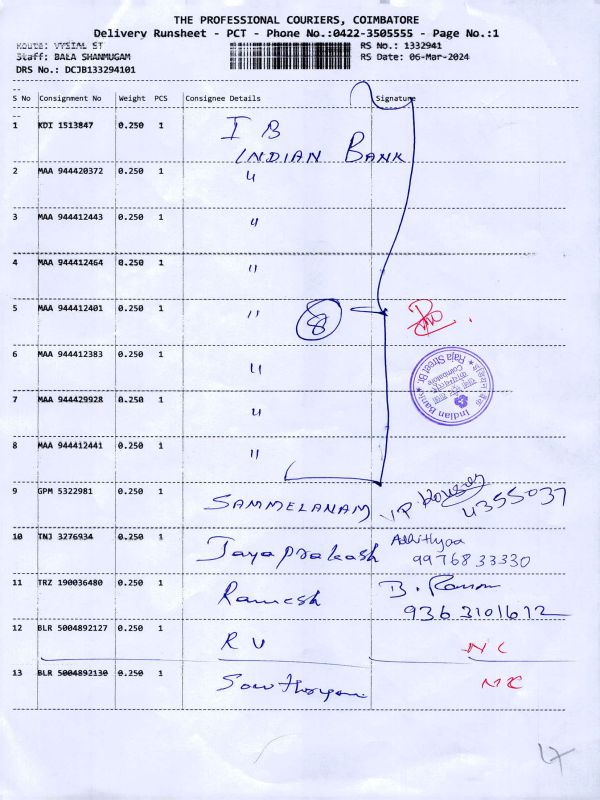 THE PROFESSIONAL COURIERS, COIMBATORE
Delivery Runsheet - PCT - Phone No.:0422-3505555 - Page No.:1
Route: VYSIAL ST RS No.: 1332941
Staff: BALA SHANMUGAM RS Date: 06-Mar-2024
DRS No.: DCJB133294101
S No Consignment No Weight PCS Consignee Details Signature
1 KDI 1513847 0.250 1 I B
INDIAN BANK
2 MAA 944420372 0.250 1 "
3 MAA 944412443 0.250 1 "
4 MAA 944412464 0.250 1 "
5 MAA 944412401 0.250 1 " 8
6 MAA 944412383 0.250 1 "
7 MAA 944429928 0.250 1 "
8 MAA 944412441 0.250 1 "
Indian Bank Raja Street Br. Coimbatore
9 GPM 5322981 0.250 1 SAMMELANAM
10 TNJ 3276934 0.250 1 Jayaprakash Adhithyaa
9976833330
11 TRZ 190036480 0.250 1 Ramesh B.
9363101612
12 BLR 5004892127 0.250 1 R V NC
13 BLR 5004892130 0.250 1 NC
17